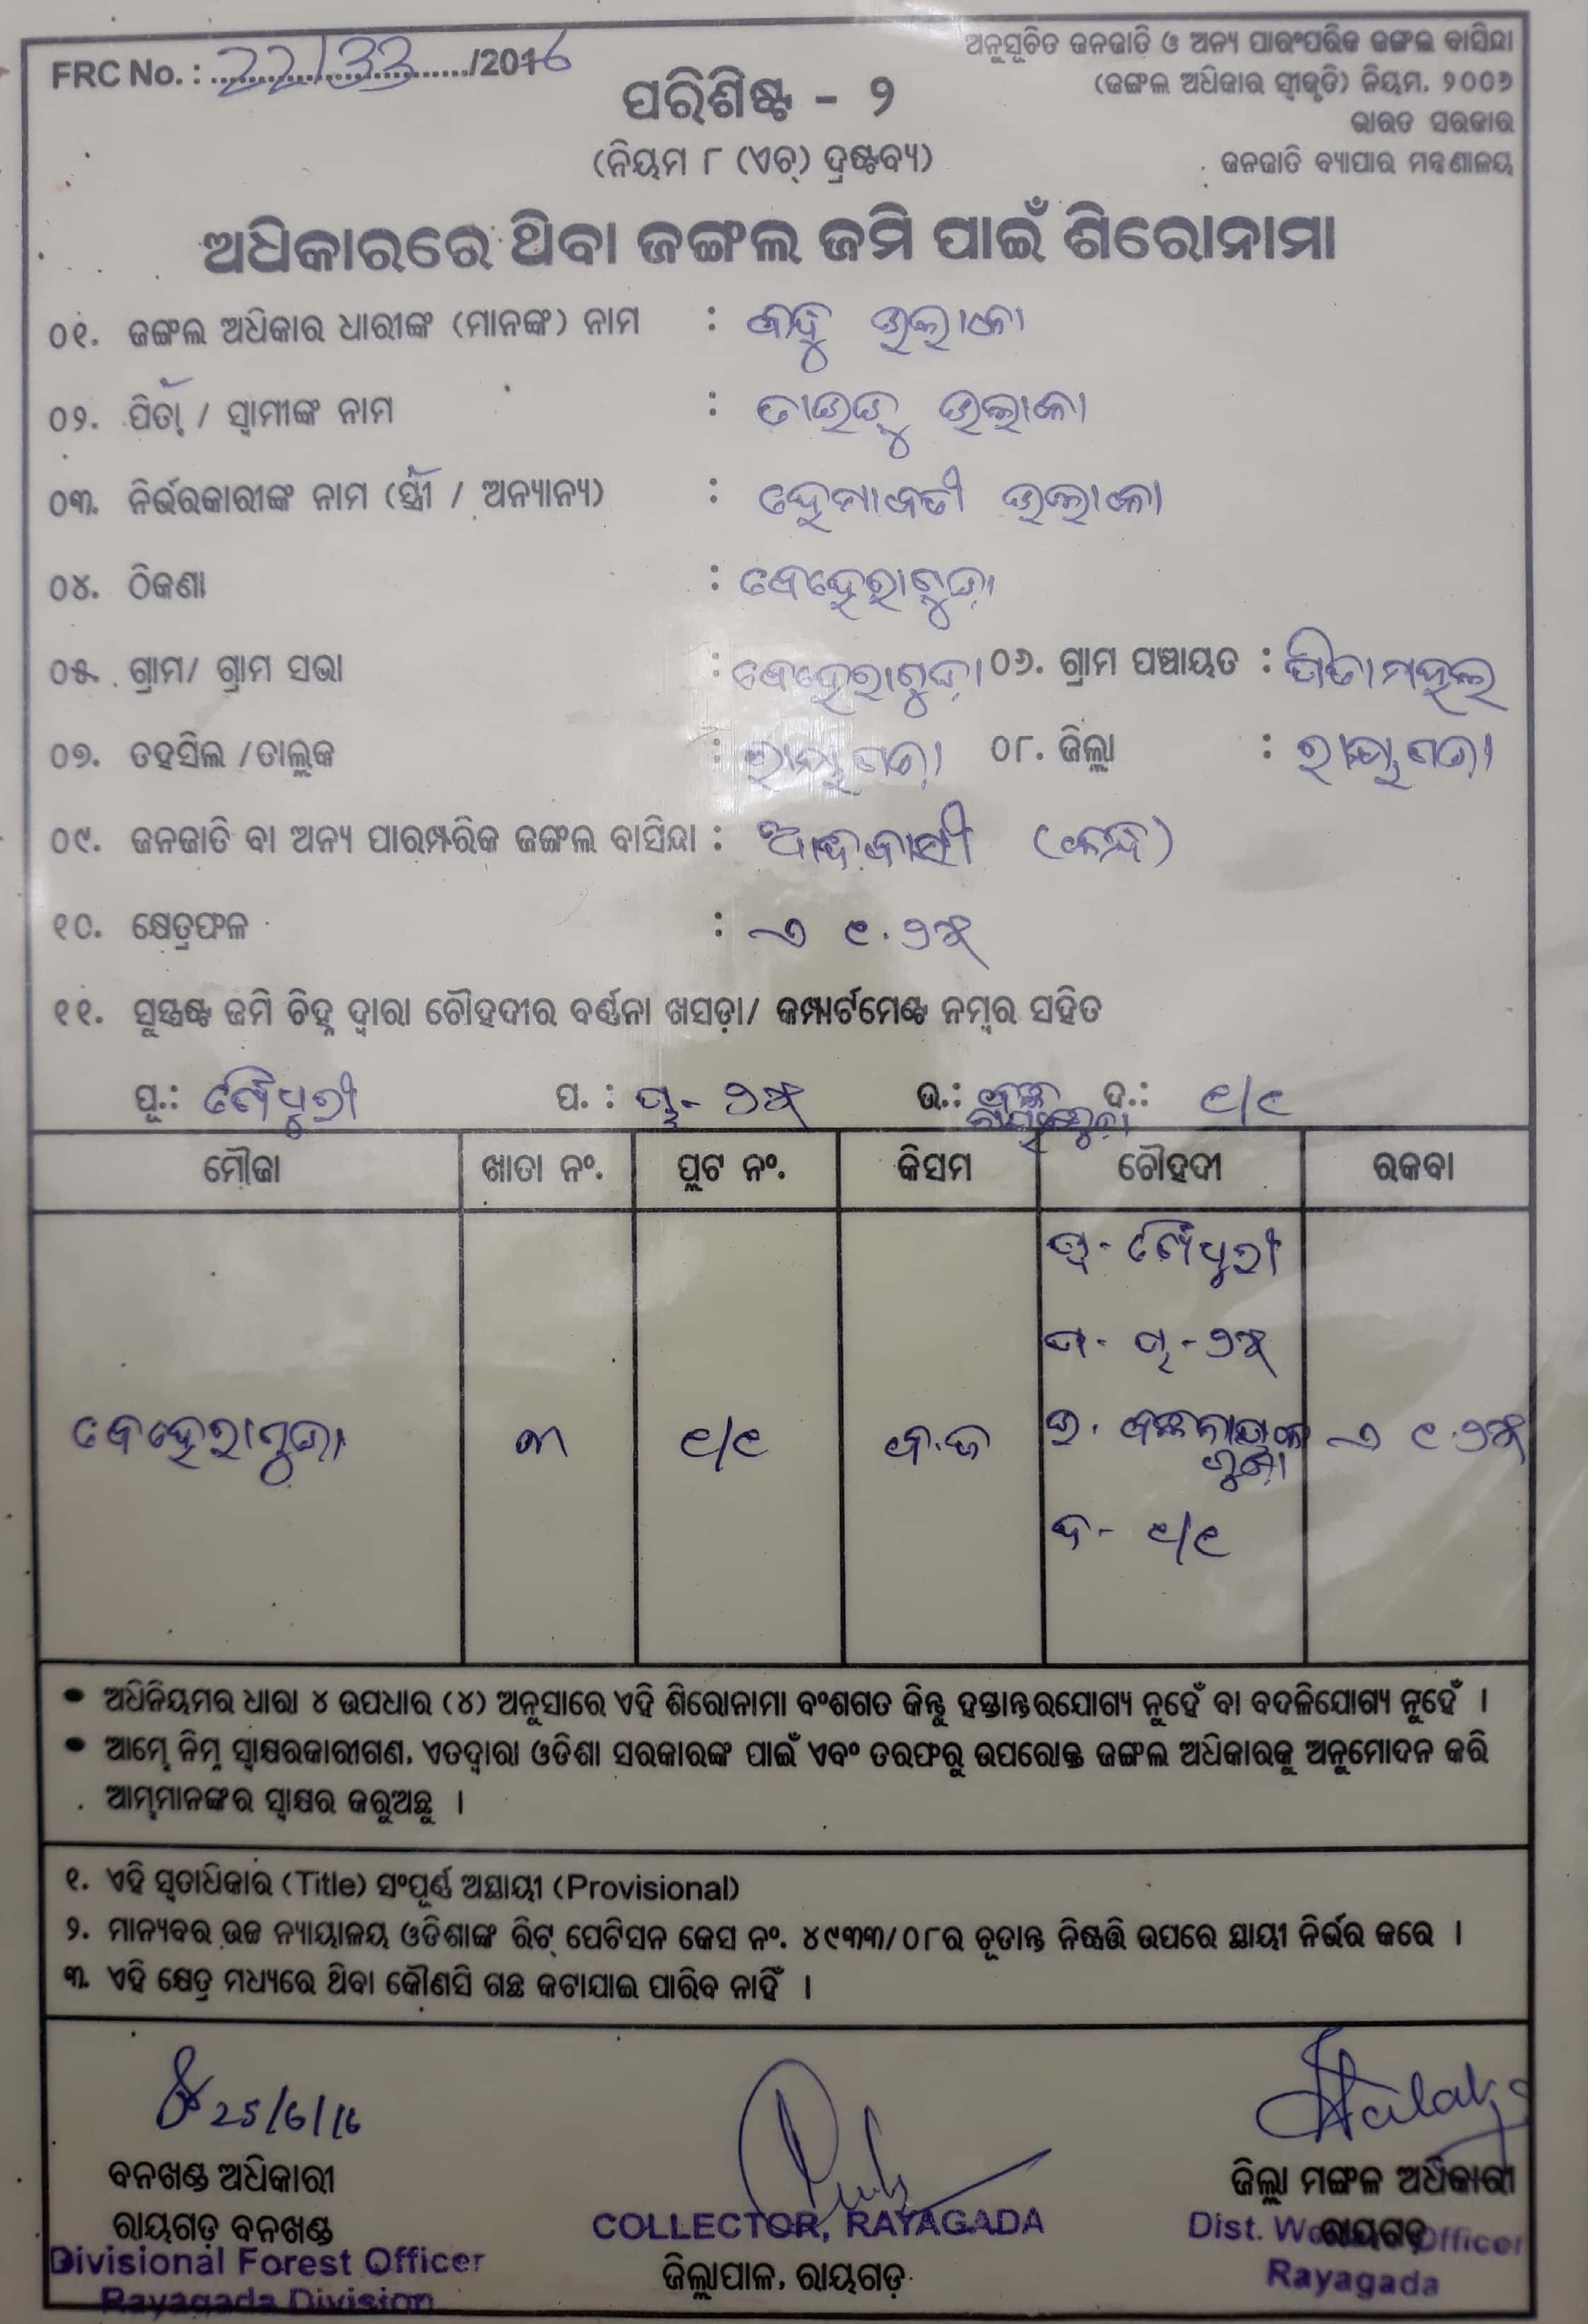 FRC No. : 22/33 /2016
ଅନୁସୂଚିତ ଜନଜାତି ଓ ଅନ୍ୟ ପାରଂପରିକ ଜଙ୍ଗଲ ବାସିନ୍ଦା
(ଜଙ୍ଗଲ ଅଧିକାର ସ୍ୱୀକୃତି) ନିୟମ. ୨୦୦୬
ଭାରତ ସରକାର
ଜନଜାତି ବ୍ୟାପାର ମନ୍ତ୍ରଣାଳୟ
ପରିଶିଷ୍ଟ - ୨
(ନିୟମ ୮ (ଏଚ୍) ଦ୍ରଷ୍ଟବ୍ୟ)
ଅଧିକାରରେ ଥିବା ଜଙ୍ଗଲ ଜମି ପାଇଁ ଶିରୋନାମା
୦୧. ଜଙ୍ଗଲ ଅଧିକାର ଧାରୀଙ୍କ (ମାନଙ୍କ) ନାମ :
୦୨. ପିତା / ସ୍ୱାମୀଙ୍କ ନାମ :
୦୩. ନିର୍ଭରକାରୀଙ୍କ ନାମ (ସ୍ତ୍ରୀ / ଅନ୍ୟାନ୍ୟ) : ହେମାବତୀ
୦୪. ଠିକଣା : ବେହେରାଗୁଡ଼ା
୦୫. ଗ୍ରାମ/ ଗ୍ରାମ ସଭା : ବେହେରାଗୁଡ଼ା ୦୬. ଗ୍ରାମ ପଞ୍ଚାୟତ : ପିତାମହଲ
୦୭. ତହସିଲ /ତାଲୁକ : ରାୟଗଡ଼ା ୦୮. ଜିଲ୍ଲା : ରାୟଗଡ଼ା
୦୯. ଜନଜାତି ବା ଅନ୍ୟ ପାରମ୍ପରିକ ଜଙ୍ଗଲ ବାସିନ୍ଦା : ଆଦିବାସୀ
୧୦. କ୍ଷେତ୍ରଫଳ : ଏ ୧.୨୫
୧୧. ସୁସ୍ପଷ୍ଟ ଜମି ଚିହ୍ନ ଦ୍ୱାରା ଚୌହଦୀର ବର୍ଣ୍ଣନା ଖସଡ଼ା/ କମ୍ପାର୍ଟମେଣ୍ଟ ନମ୍ବର ସହିତ
ପୂ.: ପ. : ପ୍ଲ- ୨୫ ଉ.: ଦ.: ୧/୧
ମୌଜା ଖାତା ନଂ. ପ୍ଲଟ ନଂ. କିସମ ଚୌହଦୀ ରକବା
ପ. ପ୍ଲ-୨୫
ବେହେରାଗୁଡ଼ା ୩ ୧/୧ ବ.ଜ ଏ ୧.୨୫
ଦ- ୧/୧
• ଅଧିନିୟମର ଧାରା ୪ ଉପଧାର (୪) ଅନୁସାରେ ଏହି ଶିରୋନାମା ବଂଶଗତ କିନ୍ତୁ ହସ୍ତାନ୍ତରଯୋଗ୍ୟ ନୁହେଁ ବା ବଦଳିଯୋଗ୍ୟ ନୁହେଁ ।
• ଆମ୍ଭେ ନିମ୍ନ ସ୍ୱାକ୍ଷରକାରୀଗଣ, ଏତଦ୍ୱାରା ଓଡିଶା ସରକାରଙ୍କ ପାଇଁ ଏବଂ ତରଫରୁ ଉପରୋକ୍ତ ଜଙ୍ଗଲ ଅଧିକାରକୁ ଅନୁମୋଦନ କରି
ଆମ୍ଭମାନଙ୍କର ସ୍ୱାକ୍ଷର କରୁଅଛୁ ।
୧. ଏହି ସ୍ୱତାଧିକାର (Title) ସଂପୂର୍ଣ୍ଣ ଅସ୍ଥାୟୀ (Provisional)
୨. ମାନ୍ୟବର ଉଚ୍ଚ ନ୍ୟାୟାଳୟ ଓଡିଶାଙ୍କ ରିଟ୍ ପେଟିସନ କେସ ନଂ. ୪୯୩୩/୦୮ର ଚୂଡାନ୍ତ ନିଷ୍ପତ୍ତି ଉପରେ ସ୍ଥାୟୀ ନିର୍ଭର କରେ ।
୩. ଏହି କ୍ଷେତ୍ର ମଧ୍ୟରେ ଥିବା କୌଣସି ଗଛ କଟାଯାଇ ପାରିବ ନାହିଁ ।
25/6/16
ବନଖଣ୍ଡ ଅଧିକାରୀ
ରାୟଗଡ଼ ବନଖଣ୍ଡ
Divisional Forest Officer
Rayagada Division
COLLECTOR, RAYAGADA
ଜିଲ୍ଲାପାଳ, ରାୟଗଡ଼
ଜିଲ୍ଲା ମଙ୍ଗଳ ଅଧିକାରୀ
ରାୟଗଡ଼
Dist. Officer
Rayagada